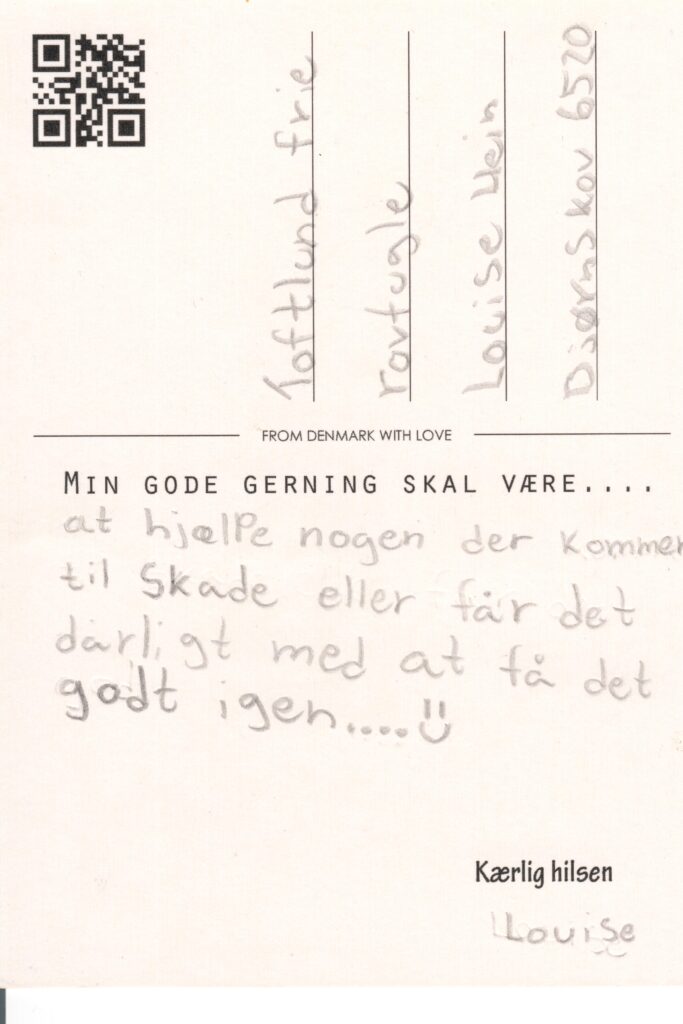 Toftlund frie
rovfugle
Louise Hein
Bjørnskov 6520
FROM DENMARK WITH LOVE
MIN GODE GERNING SKAL VÆRE....
at hjælpe nogen der kommer
til skade eller får det
dårligt med at få det
godt igen....
Kærlig hilsen
Louise